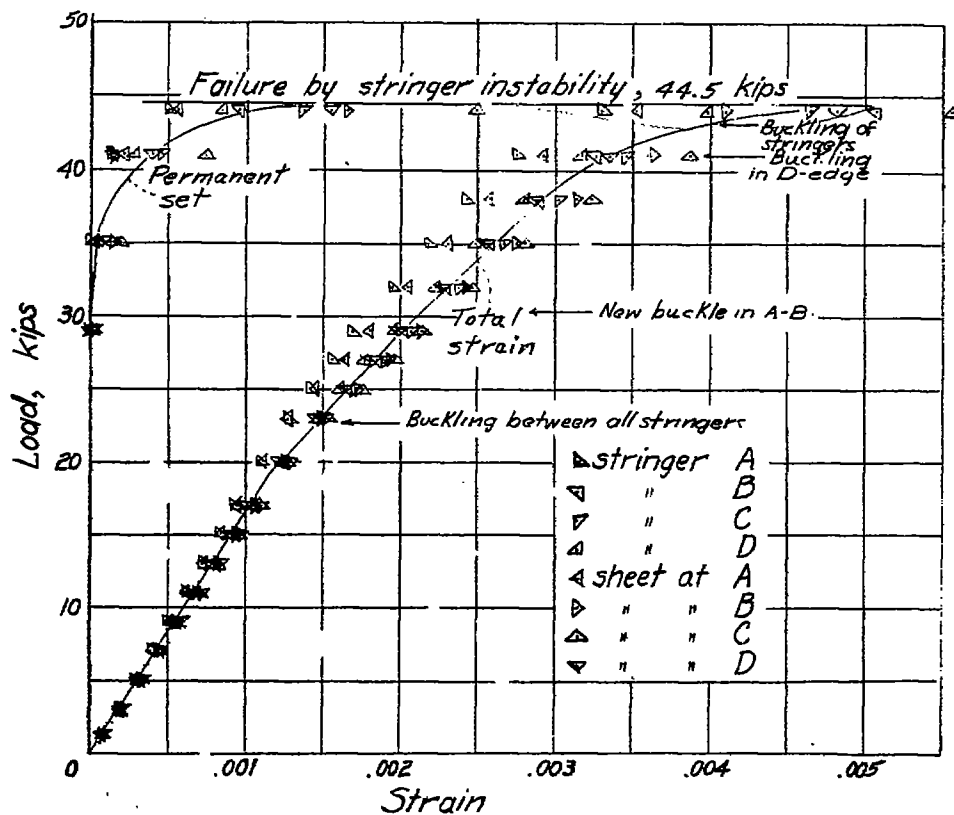 50
Failure by stringer instability, 44.5 kips
Buckling of
stringers
Buckling
in D-edge
40
Permanent
set
30
Total
strain
New buckle in A-B.
Load, kips
Buckling between all stringers
20
stringer A
" B
" C
" D
sheet at A
" " B
" " C
" " D
10
0
.001
.002
.003
.004
.005
Strain